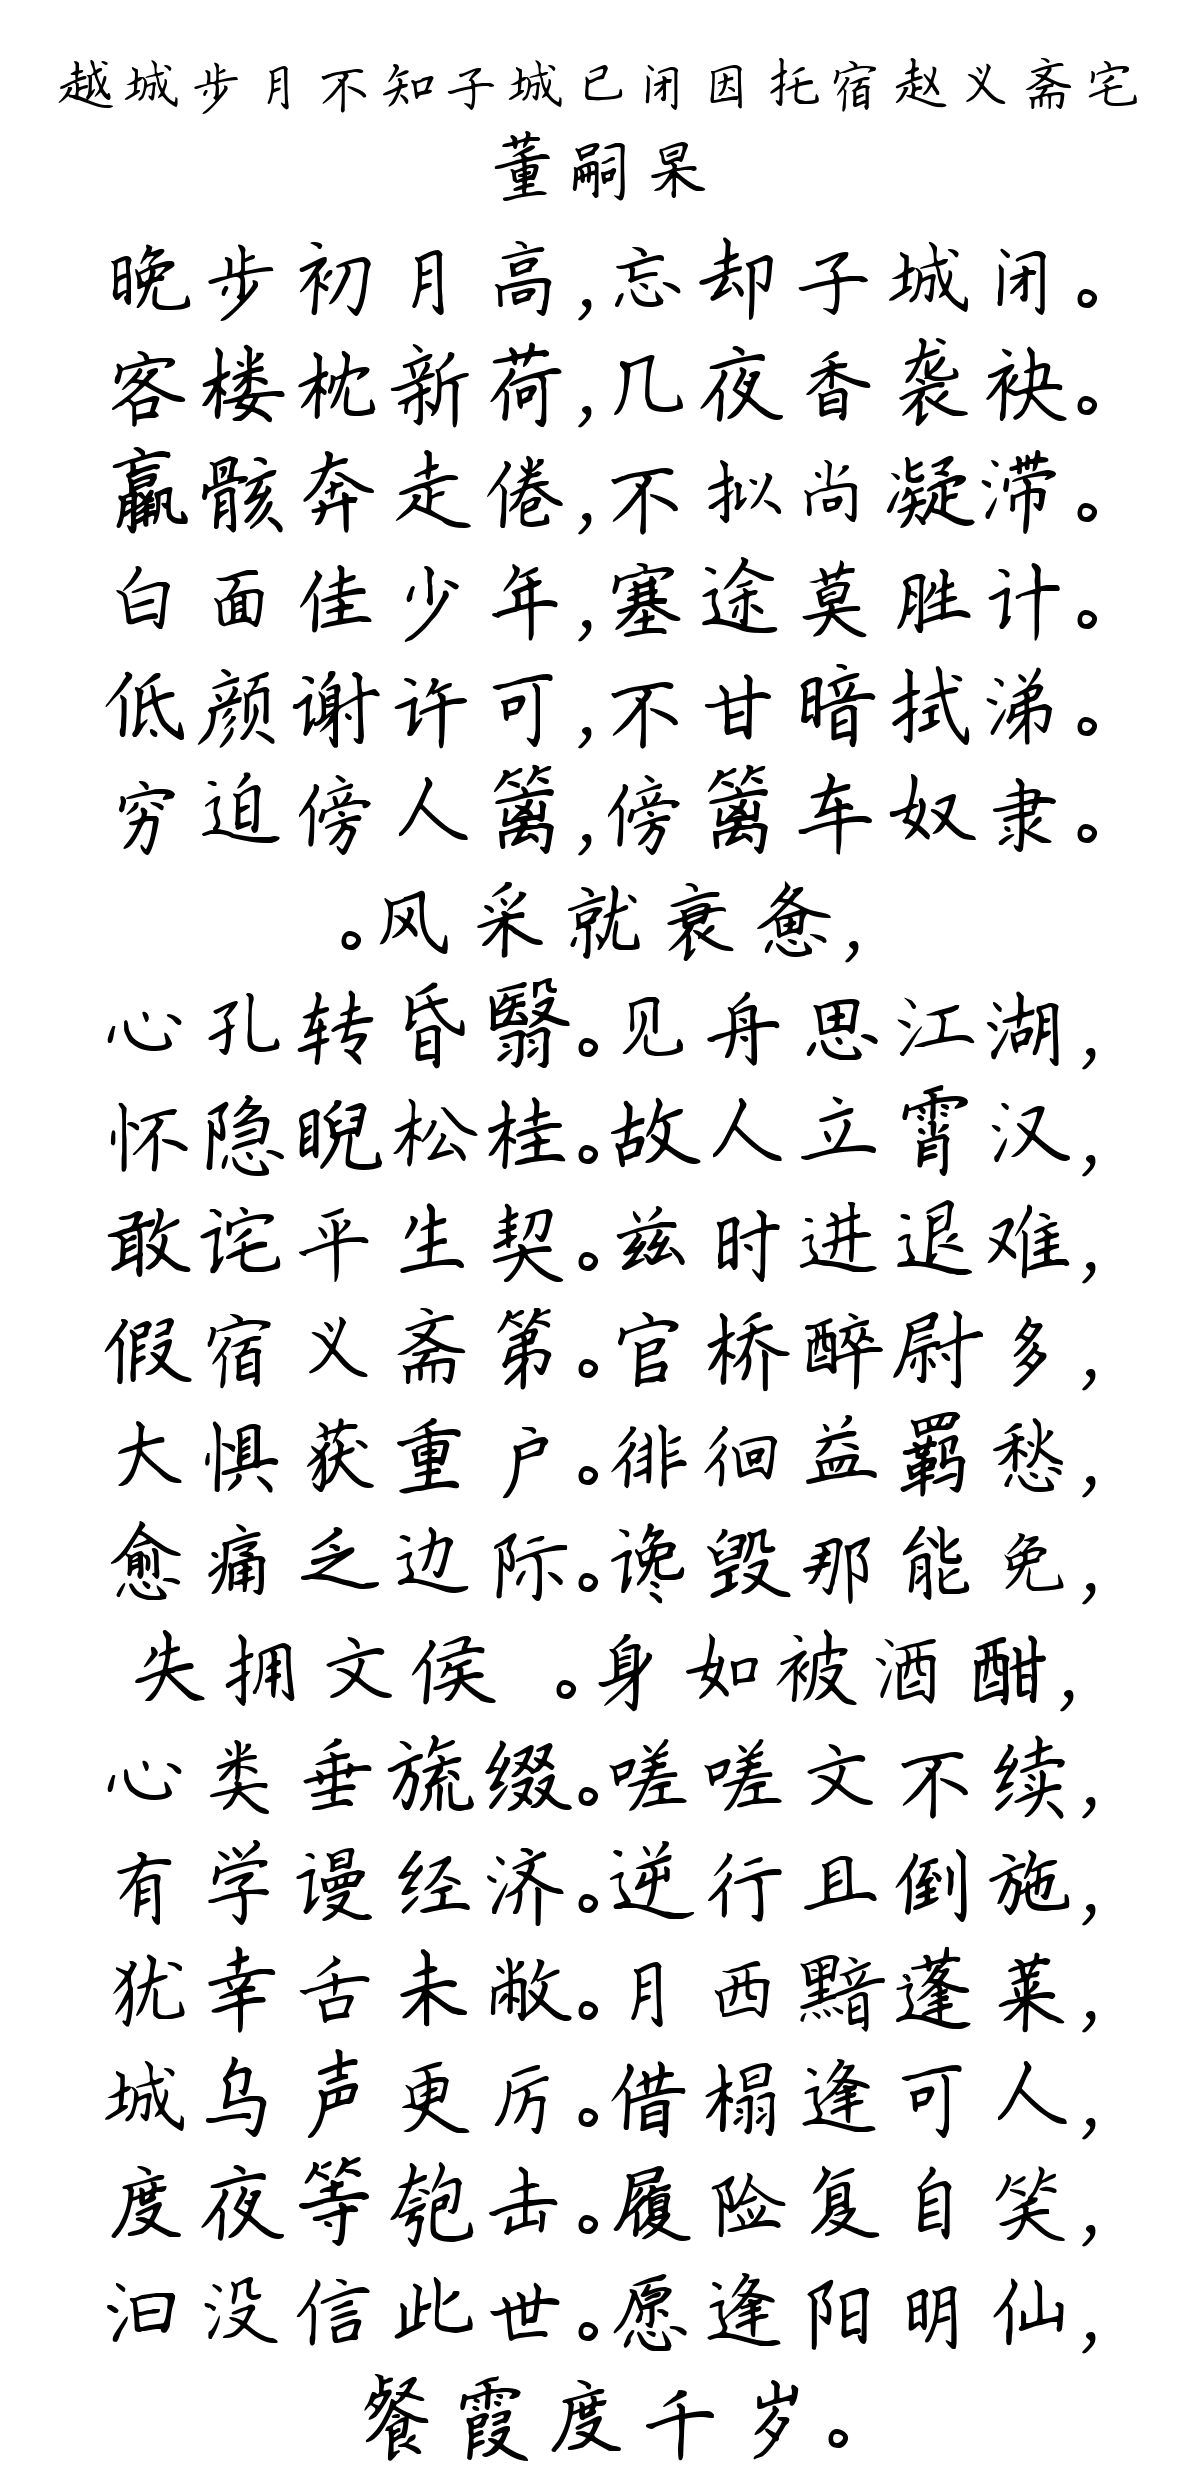 越城步月不知子城已闭因托宿赵义斋宅
董嗣杲
晚步初月高,忘却子城闭。
客楼枕新荷,几夜香袭袂。
羸骸奔走倦,不拟尚凝滞。
白面佳少年,塞途莫胜计。
低颜谢许可,不甘暗拭涕。
穷迫傍人篱,傍篱车奴隶。
。风采就衰惫,
心孔转昏翳。见舟思江湖,
怀隐睨松桂。故人立霄汉,
敢诧平生契。兹时进退难,
假宿义斋第。官桥醉尉多,
大惧获重户。徘徊益羁愁,
愈痛乏边际。谗毁那能免,
失拥文侯 。身如被酒酣,
心类垂旒缀。嗟嗟文不续,
有学谩经济。逆行且倒施,
犹幸舌未敝。月西黯蓬莱,
城乌声更厉。借榻逢可人,
度夜等匏击。履险复自笑,
汩没信此世。愿逢阳明仙,
餐霞度千岁。